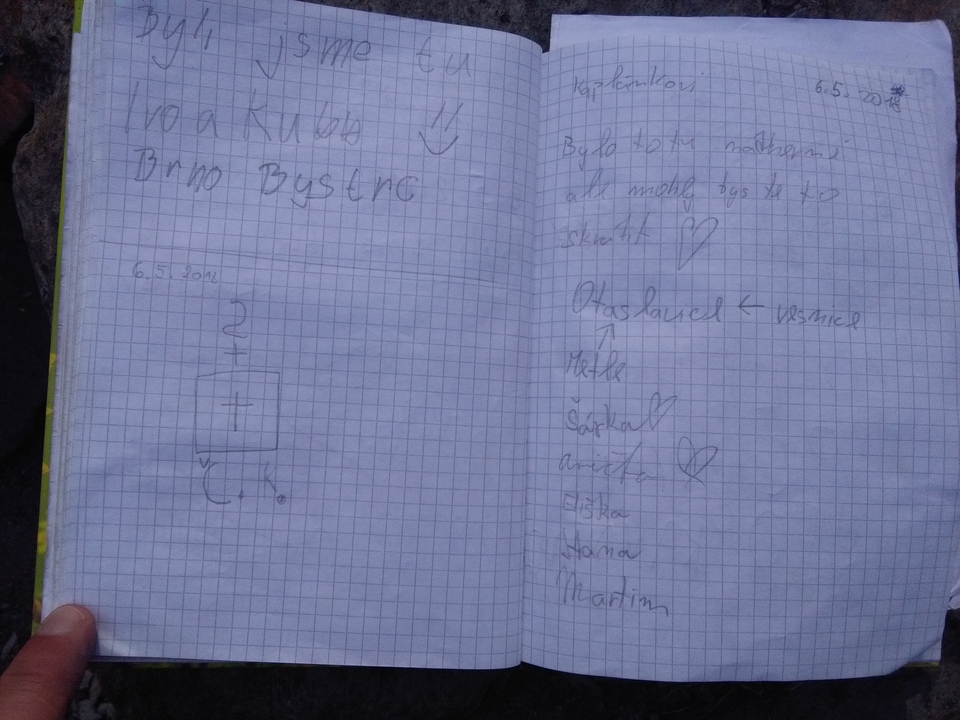 Byli jsme tu
Ivo a Kuba
Brno Bystrc
6.5. 2018
2
+
+
Č. K.
6.5. 2018
Bylo to tu nádherné
ale mohly byste to
zkrátit
Otaslavice ← vesnice
↑
Šárka
anička
Eliška
Hana
Martin